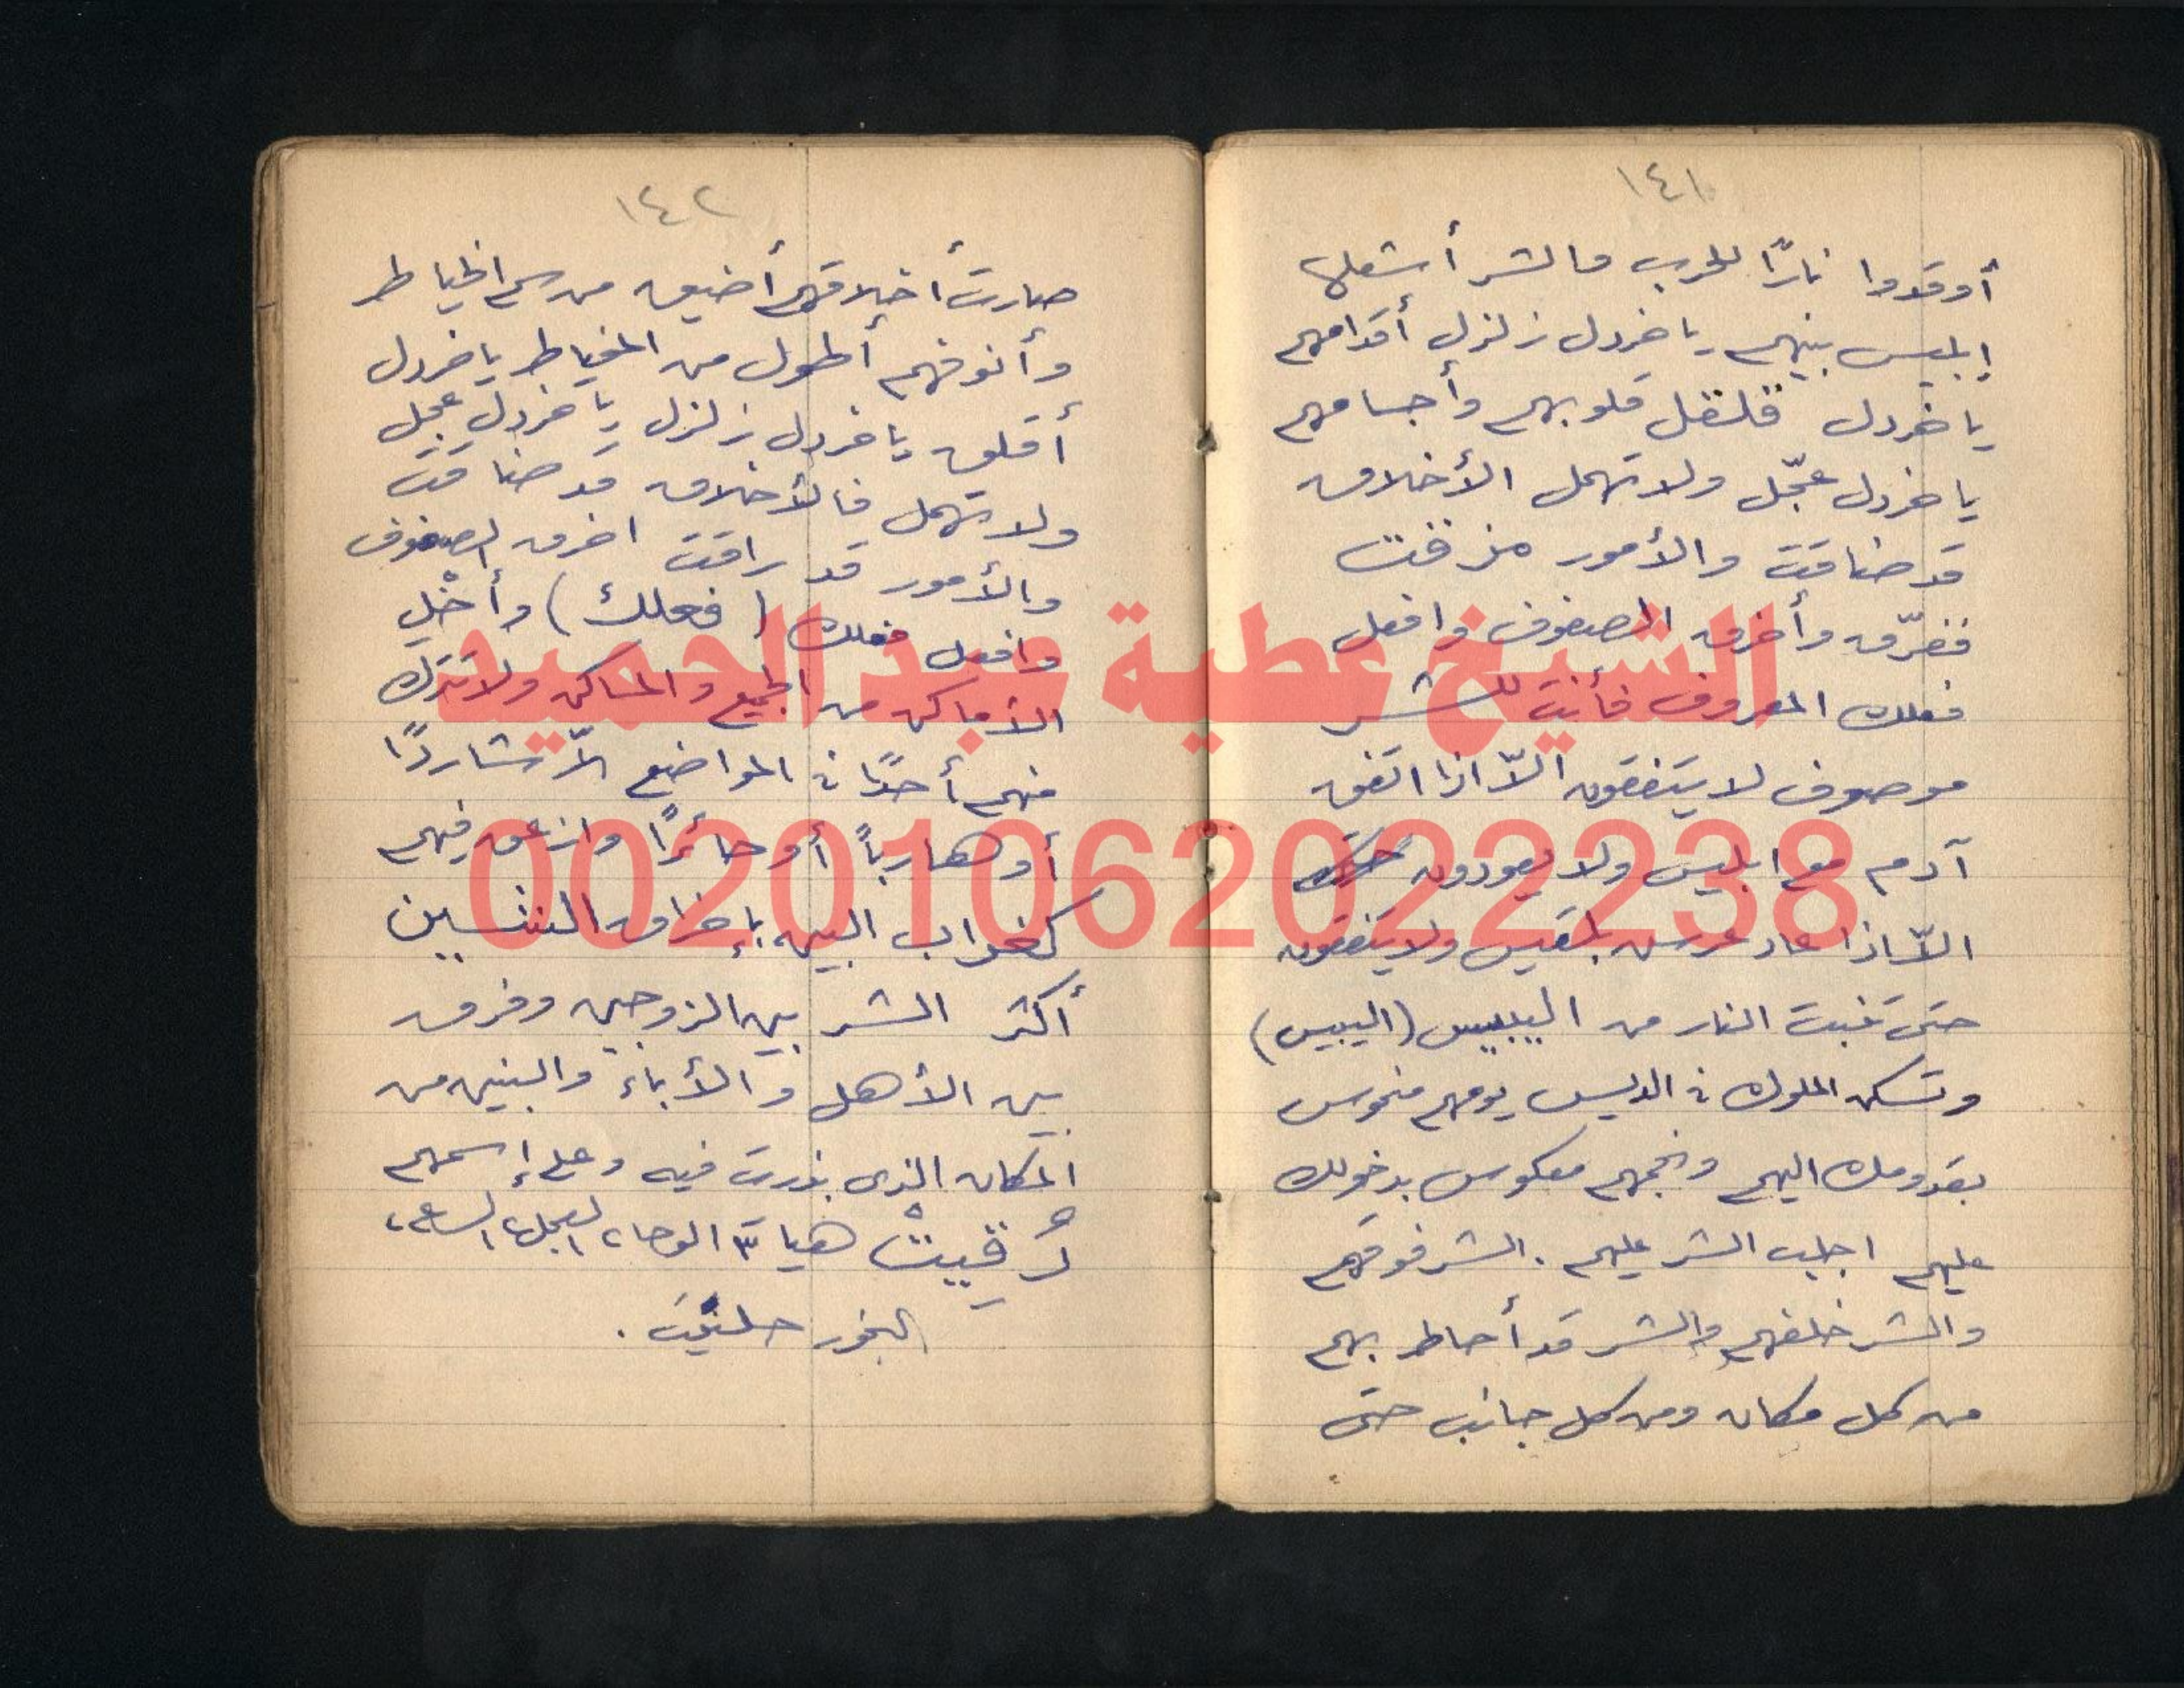 ١٤١
أوقدوا نارًا للحرب والشر أشعلها
إبليس بينهم يا خردل زلزل أقدامهم
يا خردل قلقل قلوبهم وأجسامهم
يا خردل عجّل ولا تهمل الأخلاق
قد ضاقت والأمور مزقت
ففرّق وأخرق الصفوف وافعل
فعلك المعروف فأنت للشر
موصوف لا يتفقون الاّ اذا اتفق
آدم مع ابليس ولا يعودون
الاّ اذا عاد عرس بلقيس ولا يتفقون
حتى تنبت النار من اليبيس (اليبيس)
وتسكن الملوك في الديس يومهم منحوس
بقدومك اليهم ونجمهم معكوس بدخولك
عليهم اجلب الشر عليهم . الشر فوقهم
والشر خلفهم والشر قد أحاط بهم
من كل مكان ومن كل جانب حتى
١٤٢
صارت أخلاقهم أضيق من سم الخياط
وأنوفهم أطول من المخياط يا خردل
أقلق يا خردل زلزل يا خردل عجل
ولا تهمل فالأخلاق قد ضاقت
والأمور قد راقت اخرق الصفوف
وافعل فعلك (فعلك) وأخْلِ
الأماكن من الجميع والمساكن ولا تترك
منهم أحدًا في المواضع الاّ شاردًا
أو هاربًا أو حائرًا وازعق فيهم
كغراب البين بإخراق
أكثر الشر بين الزوجين وفرق
بين الأهل والأباء والبنين من
المكان الذى بذرت فيه وعلى إسمهم
هيا ٣ الوحا ٢ العجل ٢ الساعة ٢
البخور حلتيت .
الشيخ عطية عبد الحميد
00201062022238